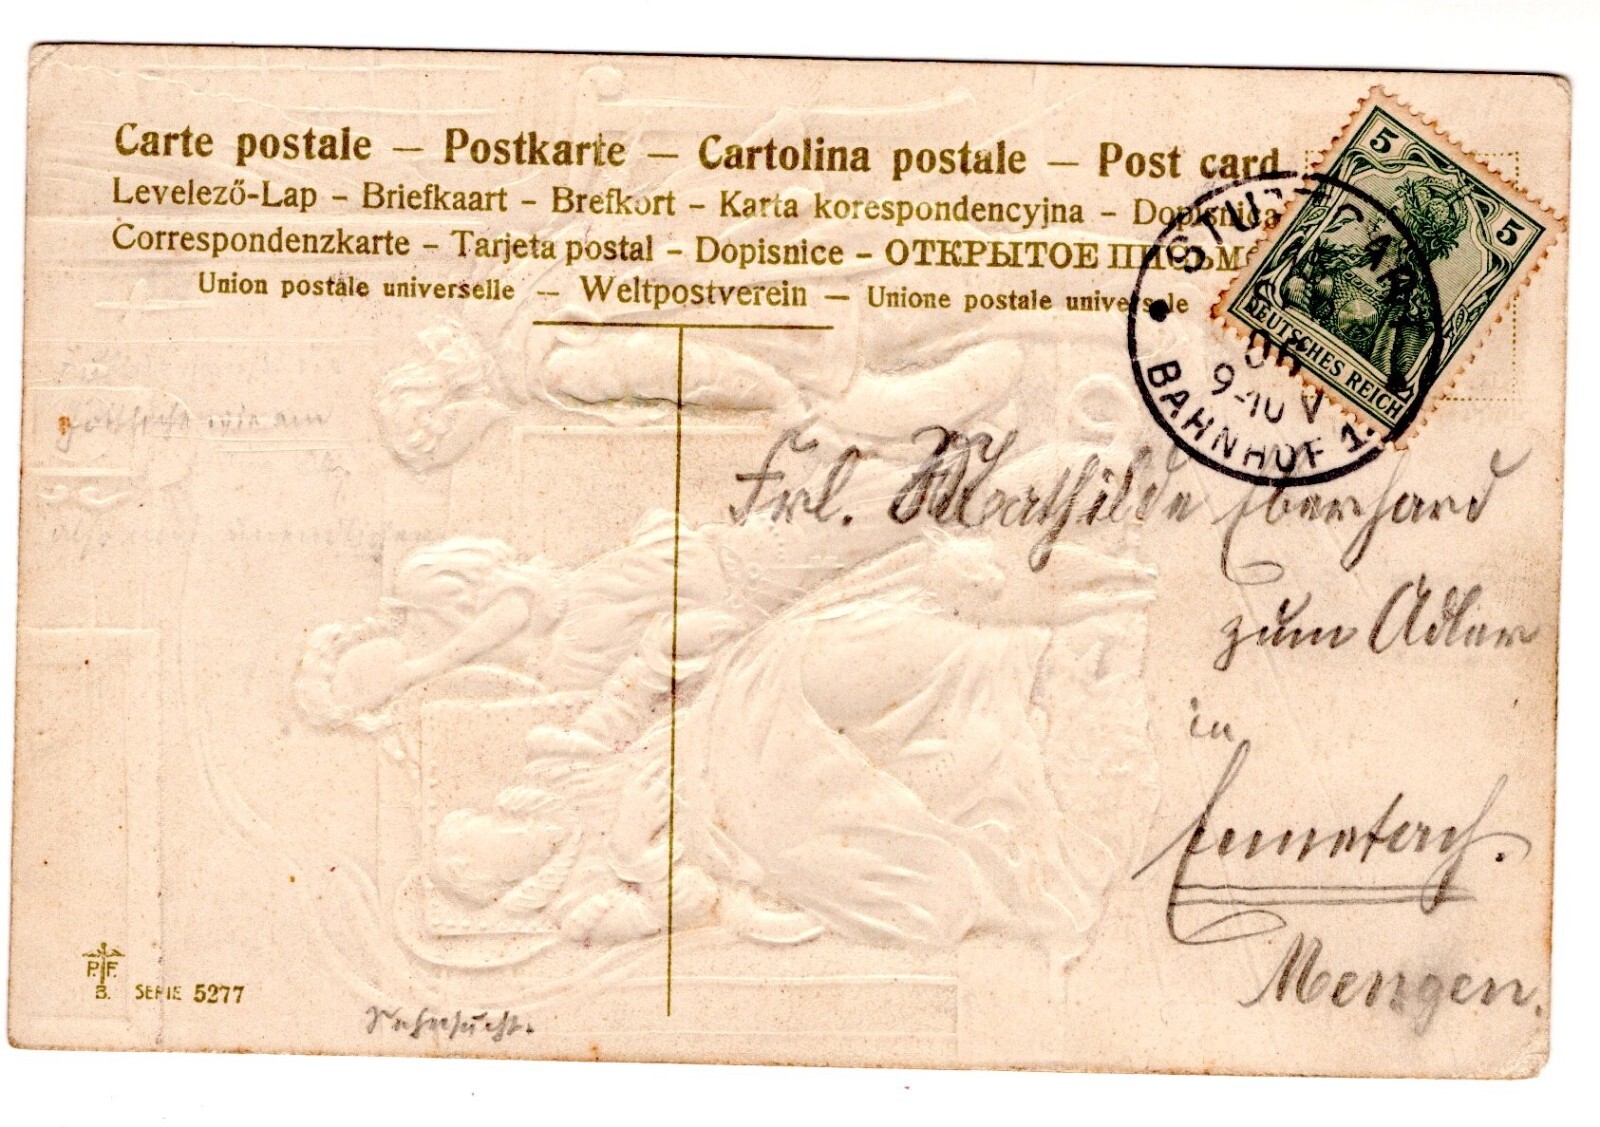 Carte postale — Postkarte — Cartolina postale — Post card
Levelező-Lap – Briefkaart – Brefkort – Karta korespondencyjna – Dopisnica
Correspondenzkarte – Tarjeta postal – Dopisnice – ОТКРЫТОЕ ПИСЬМО
Union postale universelle — Weltpostverein — Unione postale universale
5 5
DEUTSCHES REICH
STUTTGART
06
9-10 V
BAHNHOF 1.
wie am
Frl. Mathilde Eberhard
zum Adler
in
Ennetach.
Mengen.
P.F.
B. SERIE 5277
Sehnsucht.